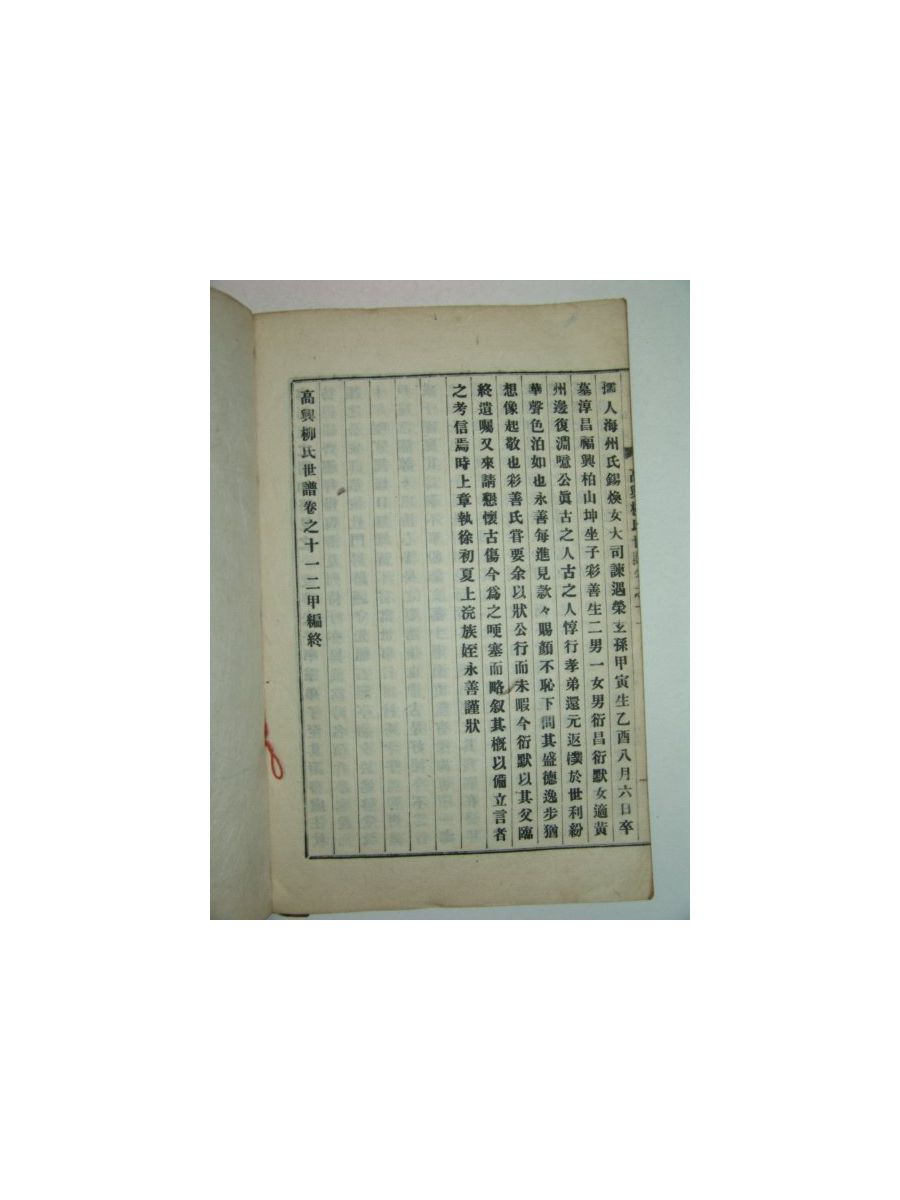 高興柳氏世譜卷之十
孺人海州氏錫煥女大司諫遇榮玄孫甲寅生乙酉八月六日卒
墓淳昌福興柏山坤坐子彩善生二男一女男衍昌衍默女適黃
州邊復淵噫公眞古之人古之人惇行孝弟還元返樸於世利紛
華聲色泊如也永善每進見款々賜顔不恥下問其盛德逸步猶
想像起敬也彩善氏嘗要余以狀公行而未暇今衍默以其父臨
終遺囑又來請懇懷古傷今爲之哽塞而略叙其槪以備立言者
之考信焉時上章執徐初夏上浣族姪永善謹狀
高興柳氏世譜卷之十一二甲編終